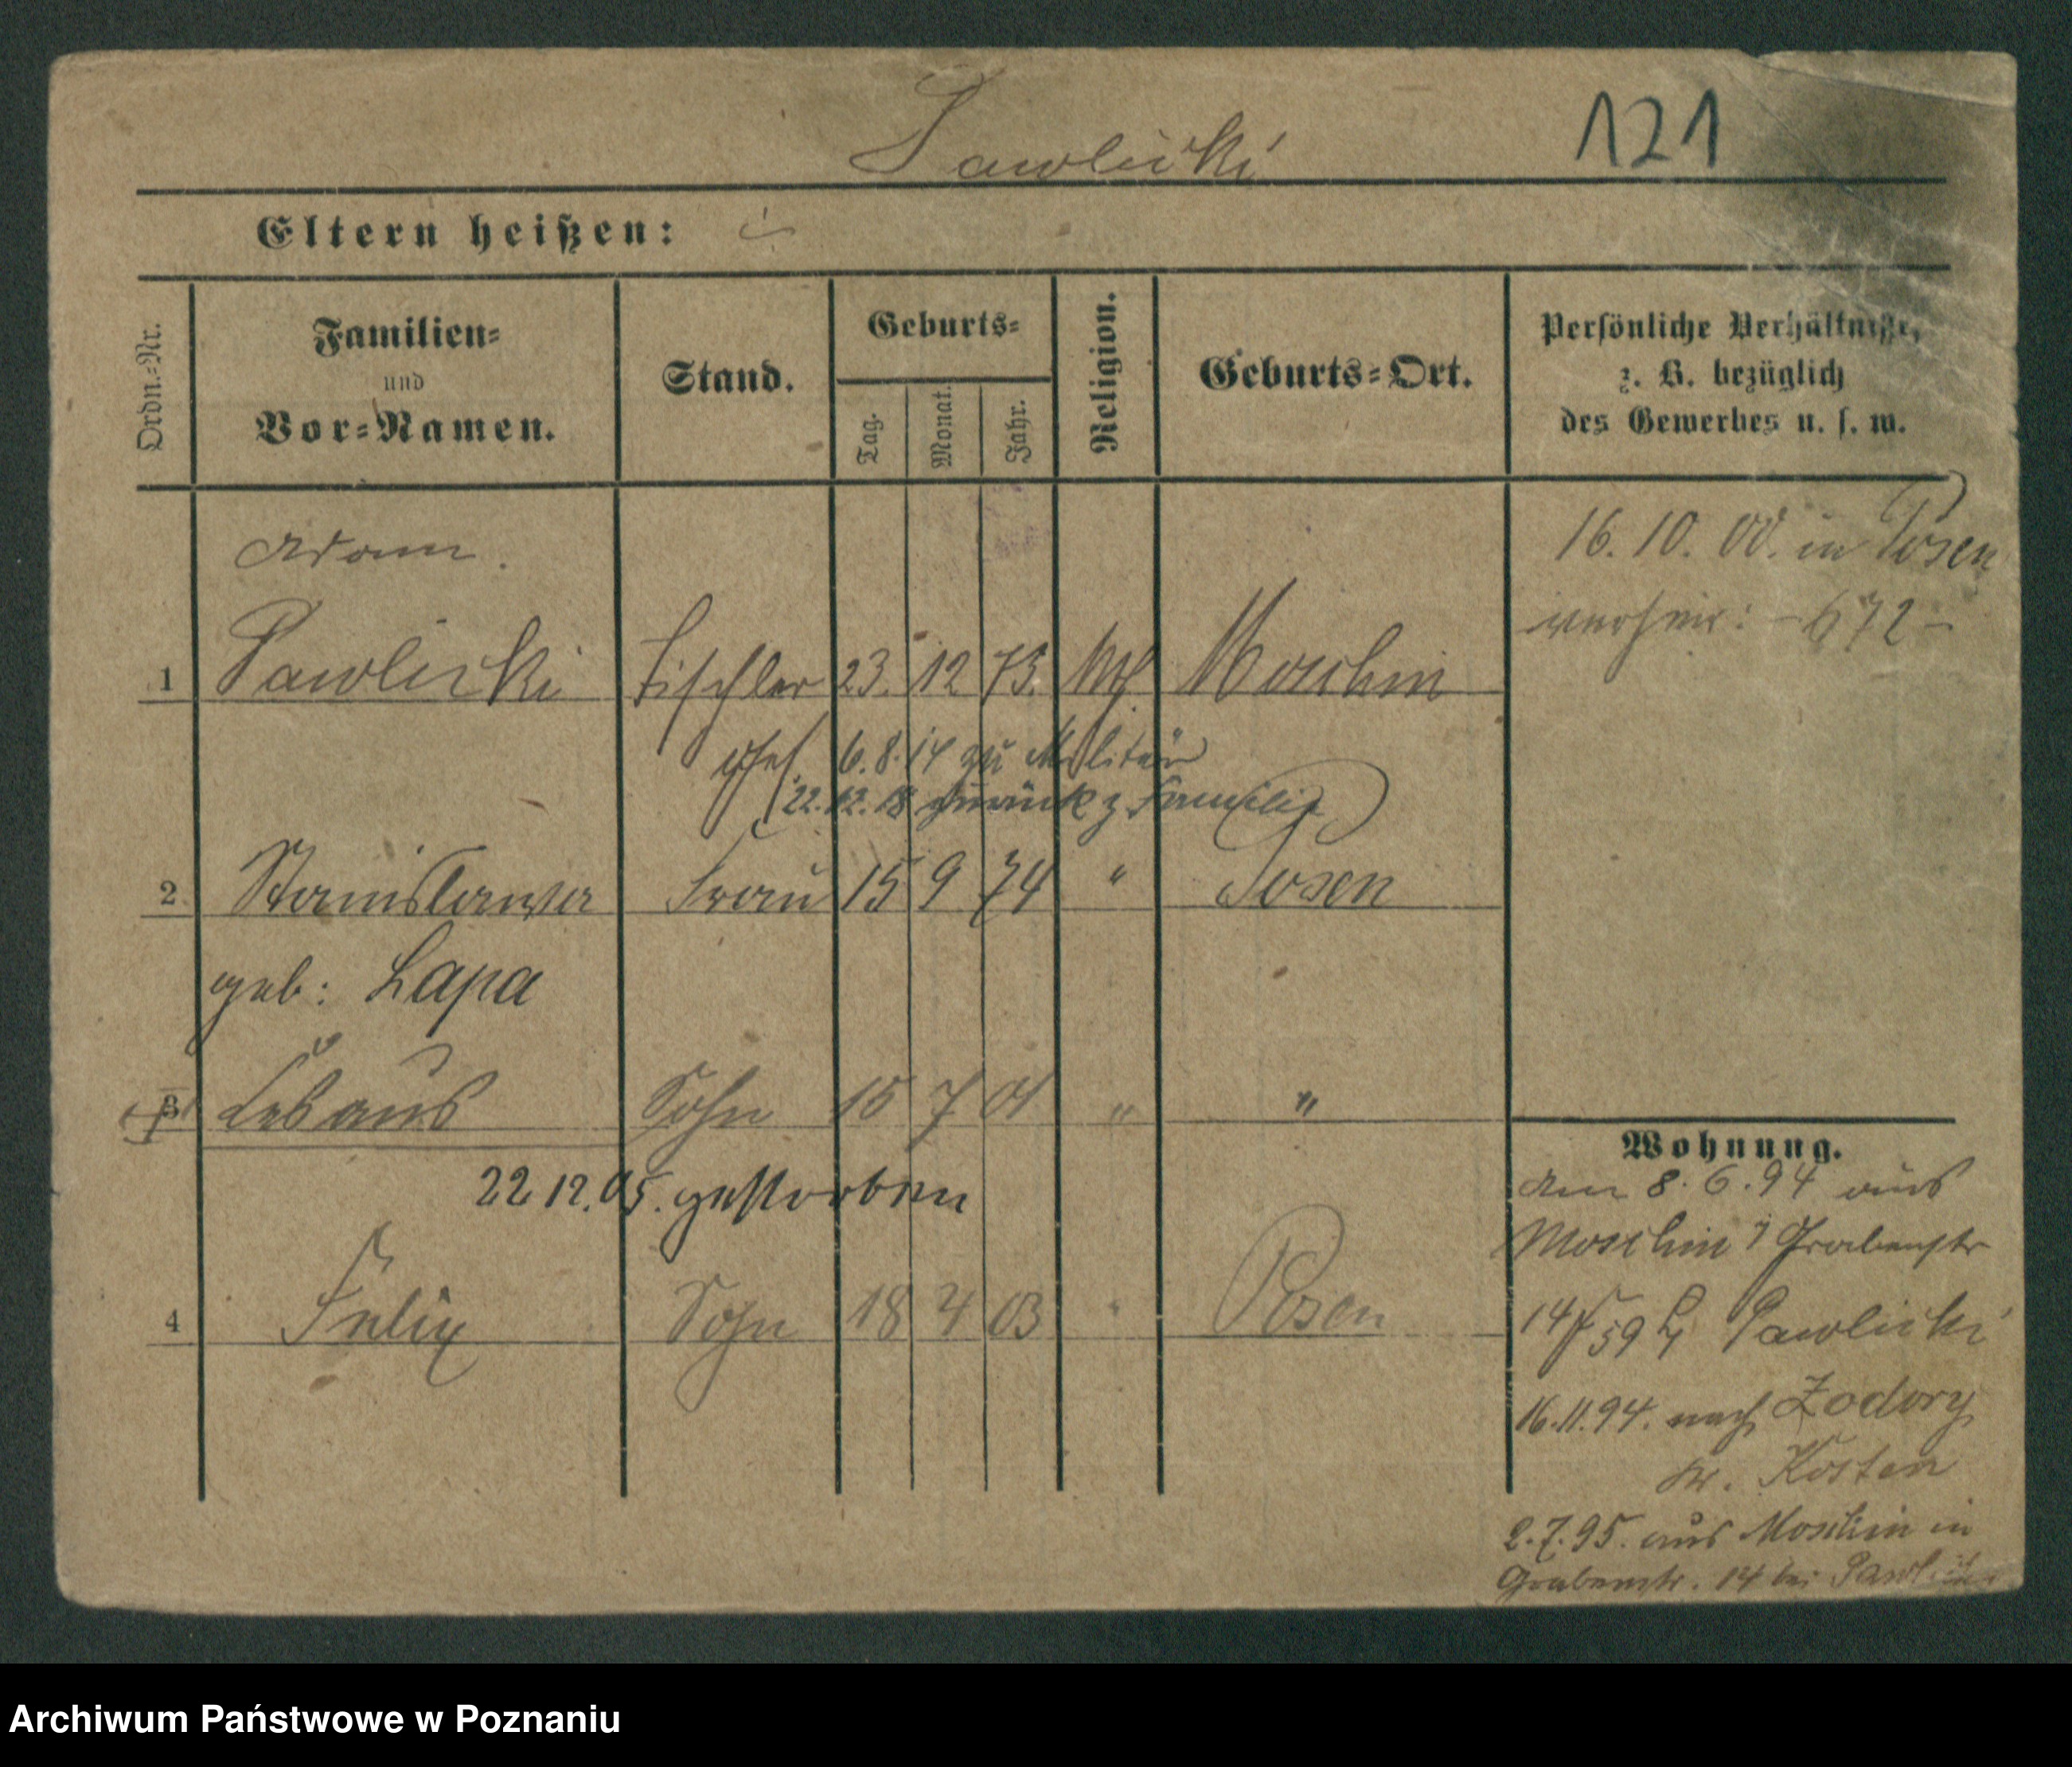 Pawlicki
121
Eltern heißen:
Ordn.-Nr.
Familien-
und
Vor-Namen.
Stand.
Geburts-
Tag.
Monat.
Jahr.
Religion.
Geburts-Ort.
Persönliche Verhältnisse,
z. B. bezüglich
des Gewerbes u. s. w.
Adam.
1 Pawlicki Tischler 23. 12 73. Moschin
16. 10. 00. in Posen
verheir: -672-
6.8.14 zu Militär
22.12.18 zurück z Familie
2. Stanislawa Frau 15 9 74 " Posen
geb: Lapa
3 Sohn 15 7 01 " "
22 12. 05. gestorben
4 Felix Sohn 18 4 03 " Posen
Wohnung.
den 8. 6. 94 aus
Moschin Grabenstr
14 Pawlicki
16.11.94. nach
Kr. Kosten
2.7.95. aus Moschin in
Grabenstr. 14 bei Pawlicki
Archiwum Państwowe w Poznaniu